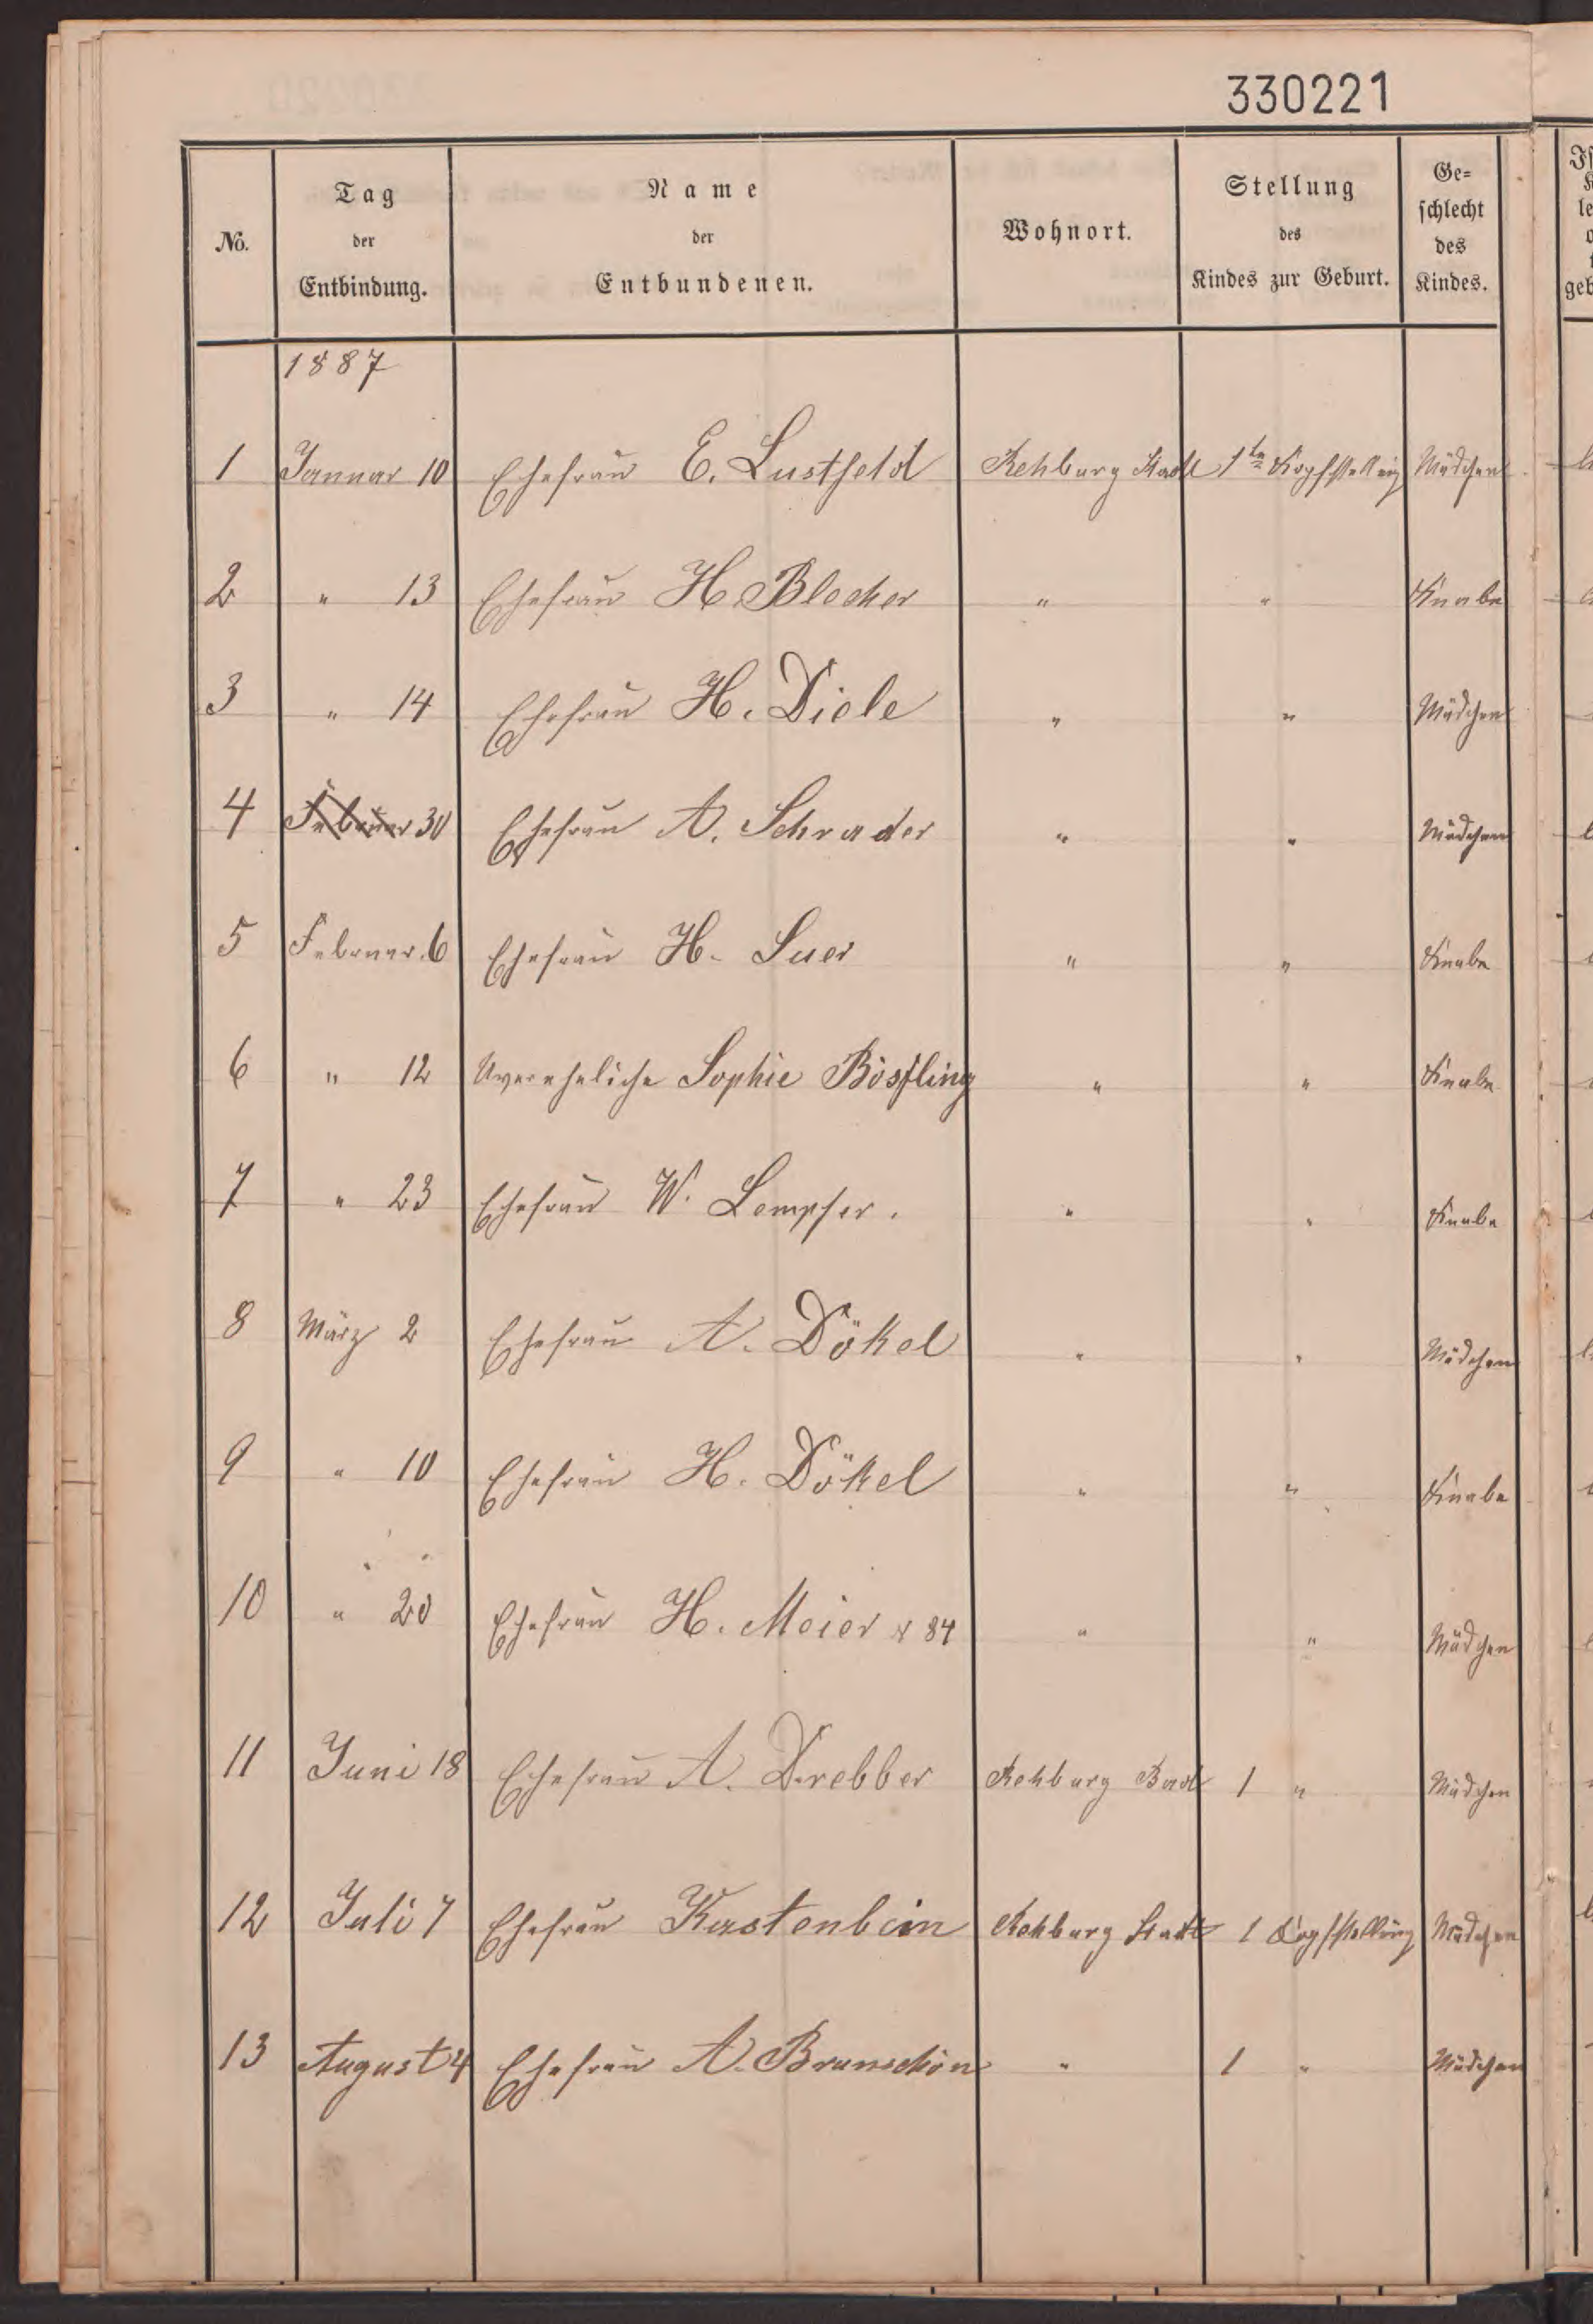 330221
No. Tag der Entbindung. Name der Entbundenen. Wohnort. Stellung des Kindes zur Geburt. Ge= schlecht des Kindes.
1887
1 Januar 10 Ehefrau E. Lustfeld Rehburg Stadt 1te Kopfstellung Mädchen
2 " 13 Ehefrau H. Blocker " " Knabe
3 " 14 Ehefrau H. Diele " " Mädchen
4 Februar 30 Ehefrau A. Schrader " " Mädchen
5 Februar. 6 Ehefrau H. Suer " " Knabe
6 " 12 Uverehliche Sophie Bösfling " " Knabe
7 " 23 Ehefrau W. Lempfer. " " Knabe
8 März 2 Ehefrau A. Dökel " " Mädchen
9 " 10 Ehefrau H. Dökel " " Knabe
10 " 20 Ehefrau H. Meier 84 " " Mädchen
11 Juni 18 Ehefrau A. Drebber Rehburg Bad 1 " Mädchen
12 Juli 7 Ehefrau Kastenbein Rehburg Stadt 1 Kopfstellung Mädchen
13 August 4 Ehefrau A. Brunschön " 1 " Mädchen